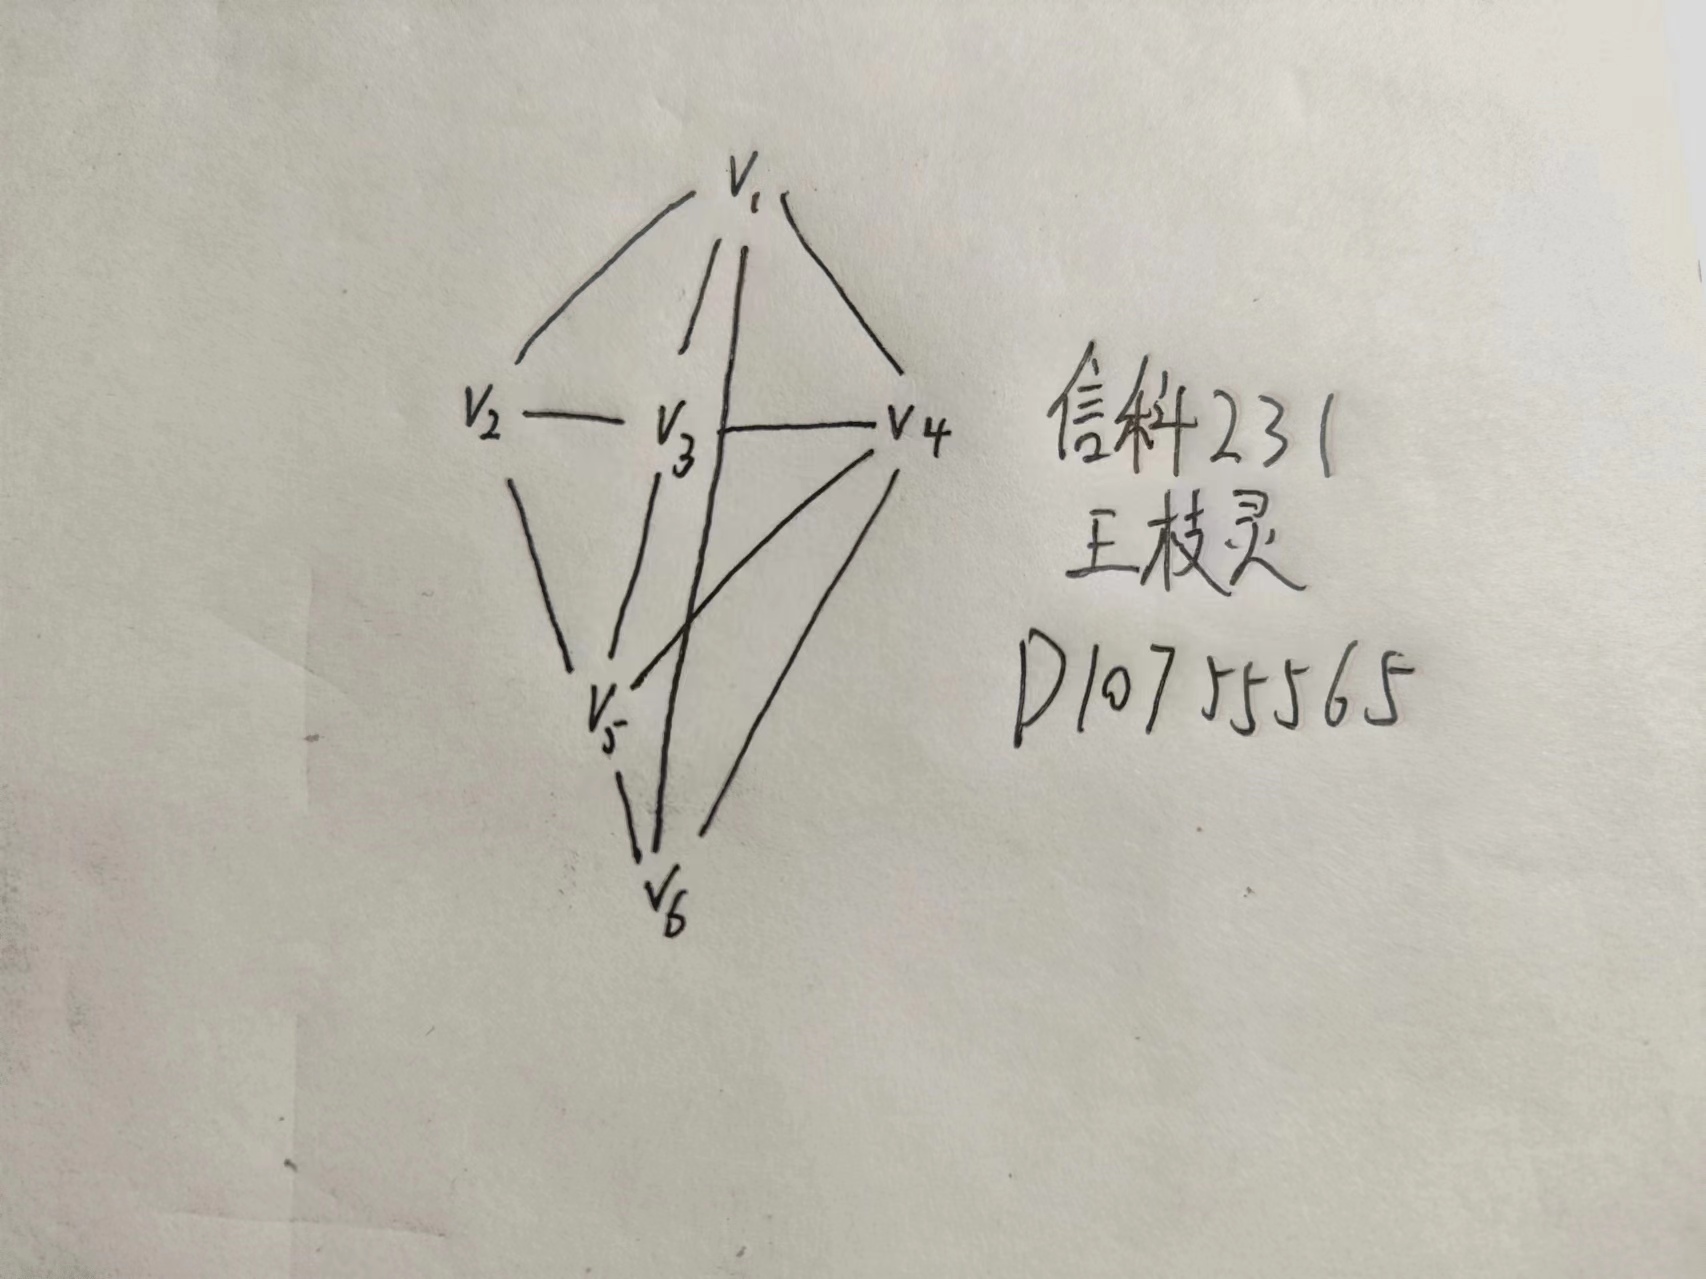 V1
V2 V3 V4
V5
V6
信科231
王枝灵
D10755565